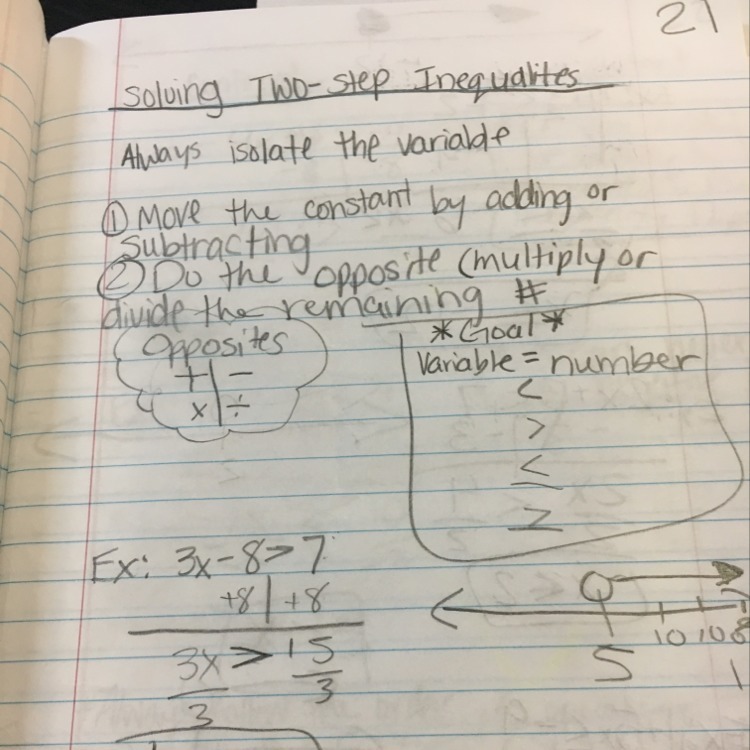 21
Solving Two-step Inequalites
Always isolate the variable
① Move the constant by adding or
subtracting
② Do the opposite (multiply or
divide the remaining #
Opposites
+ | −
× | ÷
*Goal*
Variable = number
<
>
≤
≥
Ex: 3x − 8 > 7
+8 | +8
3x > 15
3 3
5 10 100